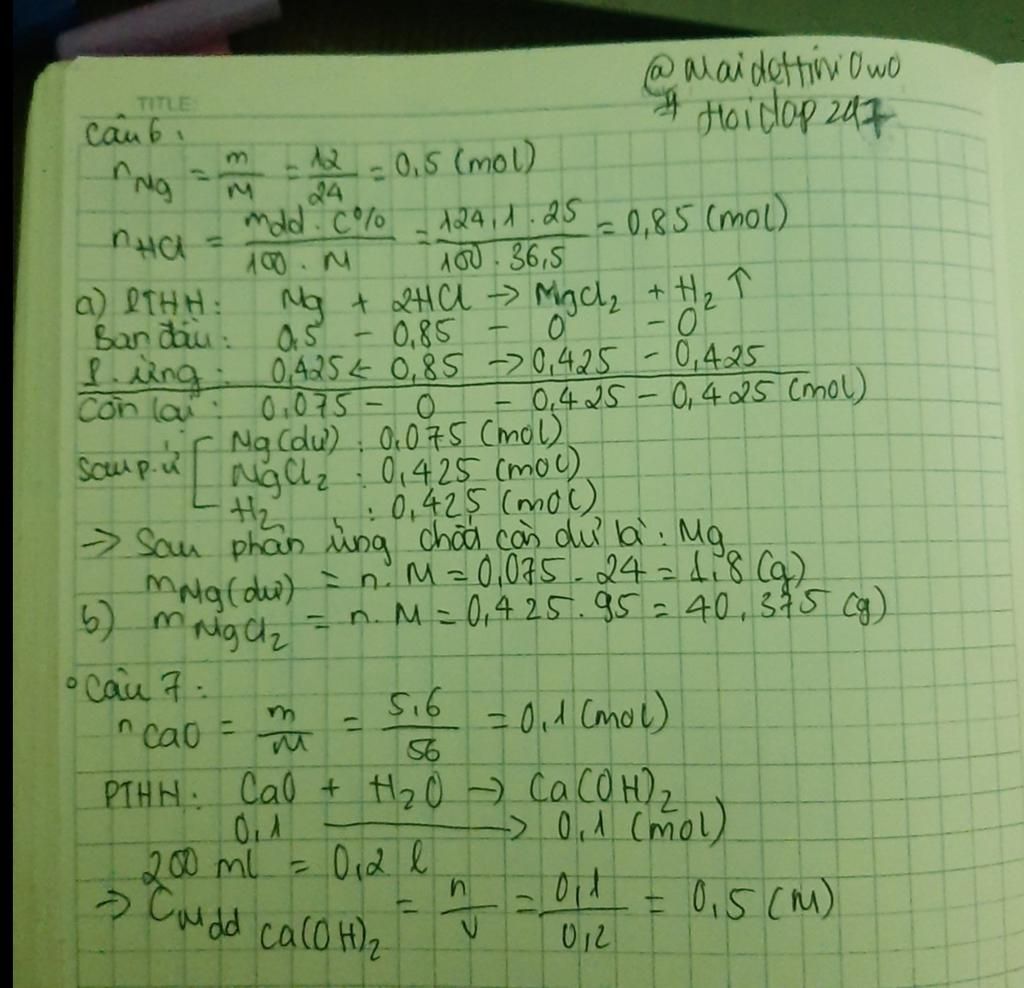 @maidettiniOwO
# Hoidap247
TITLE:
Câu 6:
nMg = m/M = 12/24 = 0,5 (mol)
nHCl = mdd . C%/100 . M = 124,1 . 25/100 . 36,5 = 0,85 (mol)
a) PTHH: Mg + 2HCl → MgCl2 + H2 ↑
Ban đầu: 0,5 - 0,85 - 0 - 0
P. ứng: 0,425 ← 0,85 → 0,425 - 0,425
Còn lại: 0,075 - 0 - 0,425 - 0,425 (mol)
Sau p.ứ [ Mg(dư) : 0,075 (mol)
MgCl2 : 0,425 (mol)
H2 : 0,425 (mol)
→ Sau phản ứng chất còn dư là: Mg
mMg(dư) = n. M = 0,075 . 24 = 1,8 (g)
b) mMgCl2 = n. M = 0,425 . 95 = 40,375 (g)
° Câu 7:
nCaO = m/M = 5,6/56 = 0,1 (mol)
PTHH: CaO + H2O → Ca(OH)2
0,1 → 0,1 (mol)
200 ml = 0,2 l
⇒ CMdd Ca(OH)2 = n/V = 0,1/0,2 = 0,5 (M)